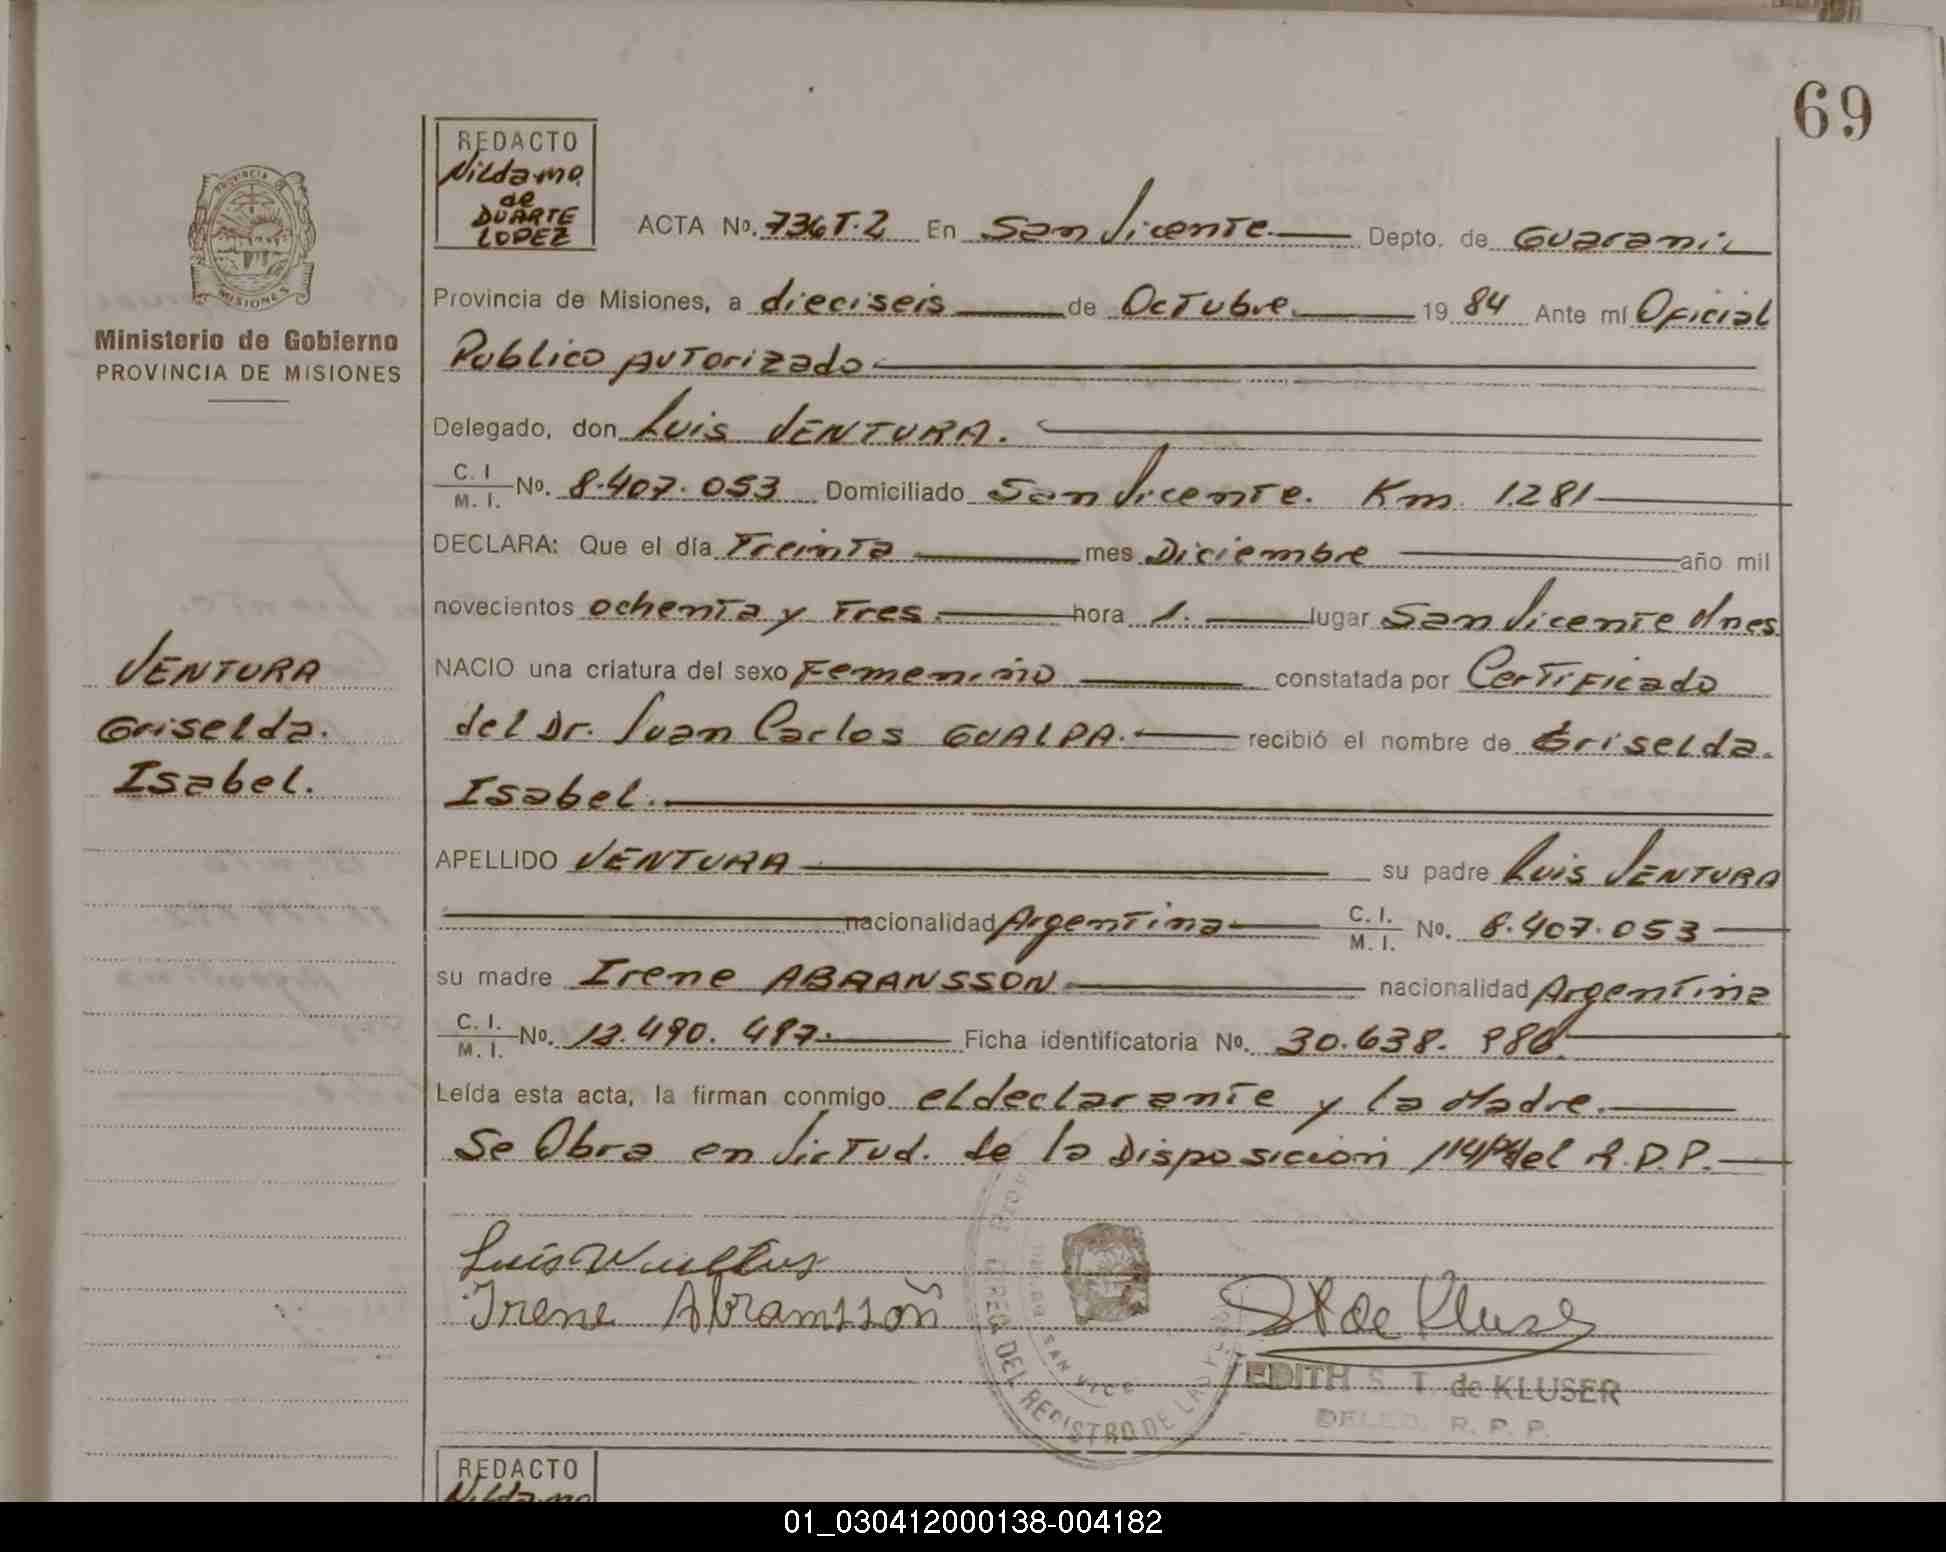 69
REDACTO
Nilda mo.
de
DUARTE
LOPEZ
ACTA No. 736 T.2 En San Vicente Depto. de Guarani
PROVINCIA DE
MISIONES
Ministerio de Gobierno
PROVINCIA DE MISIONES
Provincia de Misiones, a dieciseis de Octubre 19 84 Ante mí Oficial
Publico Autorizado
Delegado, don Luis VENTURA.
C. I. / M. I. No. 8.407.053 Domiciliado San Vicente. Km. 1.281
DECLARA: Que el día Treinta mes Diciembre año mil
novecientos ochenta y Tres. hora 1. lugar San Vicente Mnes
VENTURA
Griselda.
Isabel.
NACIO una criatura del sexo Femenino constatada por Certificado
del Dr. Juan Carlos GUALPA. recibió el nombre de Griselda.
Isabel.
APELLIDO VENTURA su padre Luis VENTURA
nacionalidad Argentina C. I. / M. I. No. 8.407.053
su madre Irene ABRANSSON. nacionalidad Argentina
C. I. / M. I. No. 12.490.497. Ficha identificatoria No. 30.638.986.
Leída esta acta, la firman conmigo el declarante y la Madre.
Se Obra en Virtud. de la Disposición del R.P.P.
Luis
Irene Abramsson
DEL REGISTRO DE LAS
SAN VICE
EDITH S. T. de KLUSER
DELEG. R. P. P.
REDACTO
Nilda mo
01_030412000138-004182